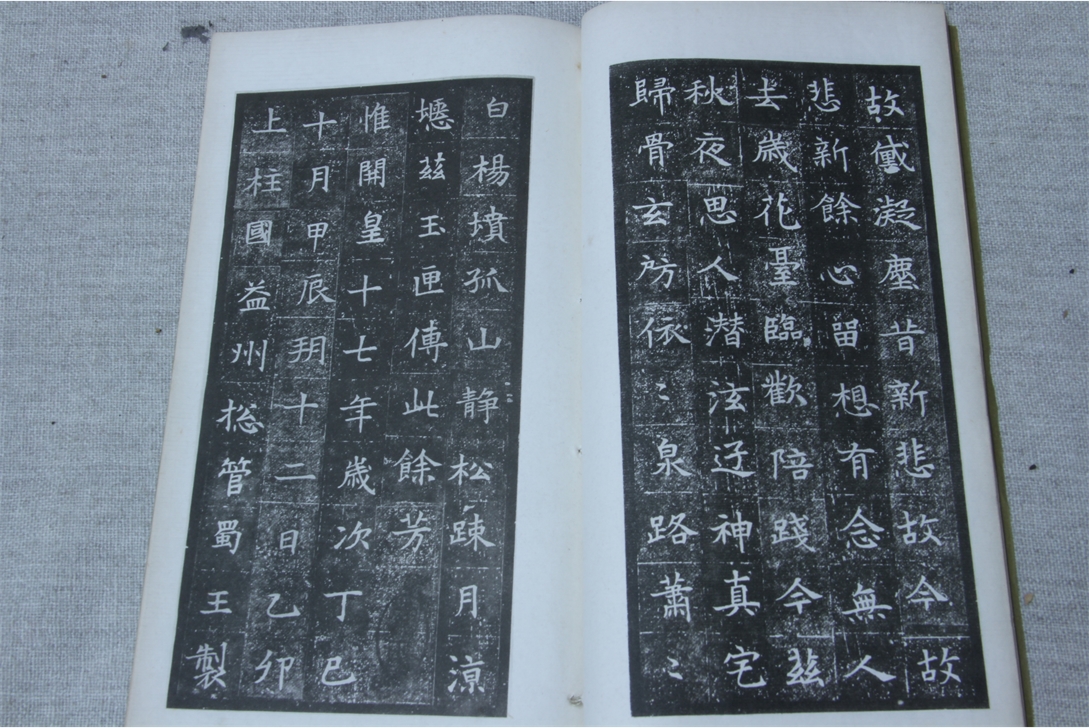 故奩凝塵昔新悲故今故
悲新餘心留想有念無人
去歲花臺臨歡陪踐今茲
秋夜思人潜泫迓神真宅
歸骨玄房依〻泉路蕭〻
白楊墳孤山静松踈月涼
壢茲玉匣傳此餘芳
惟開皇十七年歲次丁巳
十月甲辰朔十二日乙卯
上柱國益州捴管蜀王製